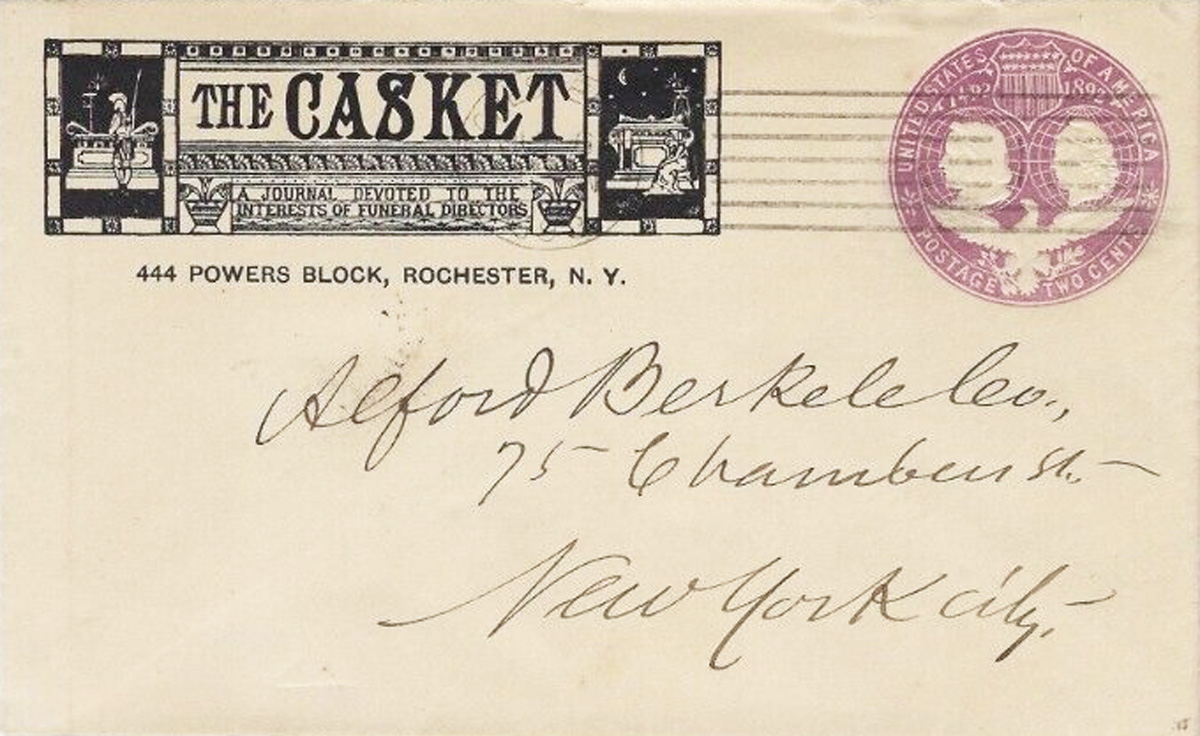 THE CASKET
A JOURNAL DEVOTED TO THE
INTERESTS OF FUNERAL DIRECTORS
444 POWERS BLOCK, ROCHESTER, N. Y.
UNITED STATES OF AMERICA
1492 1892
POSTAGE TWO CENTS
Alford Berkele Co.,
75 Chambers St.
New York City.